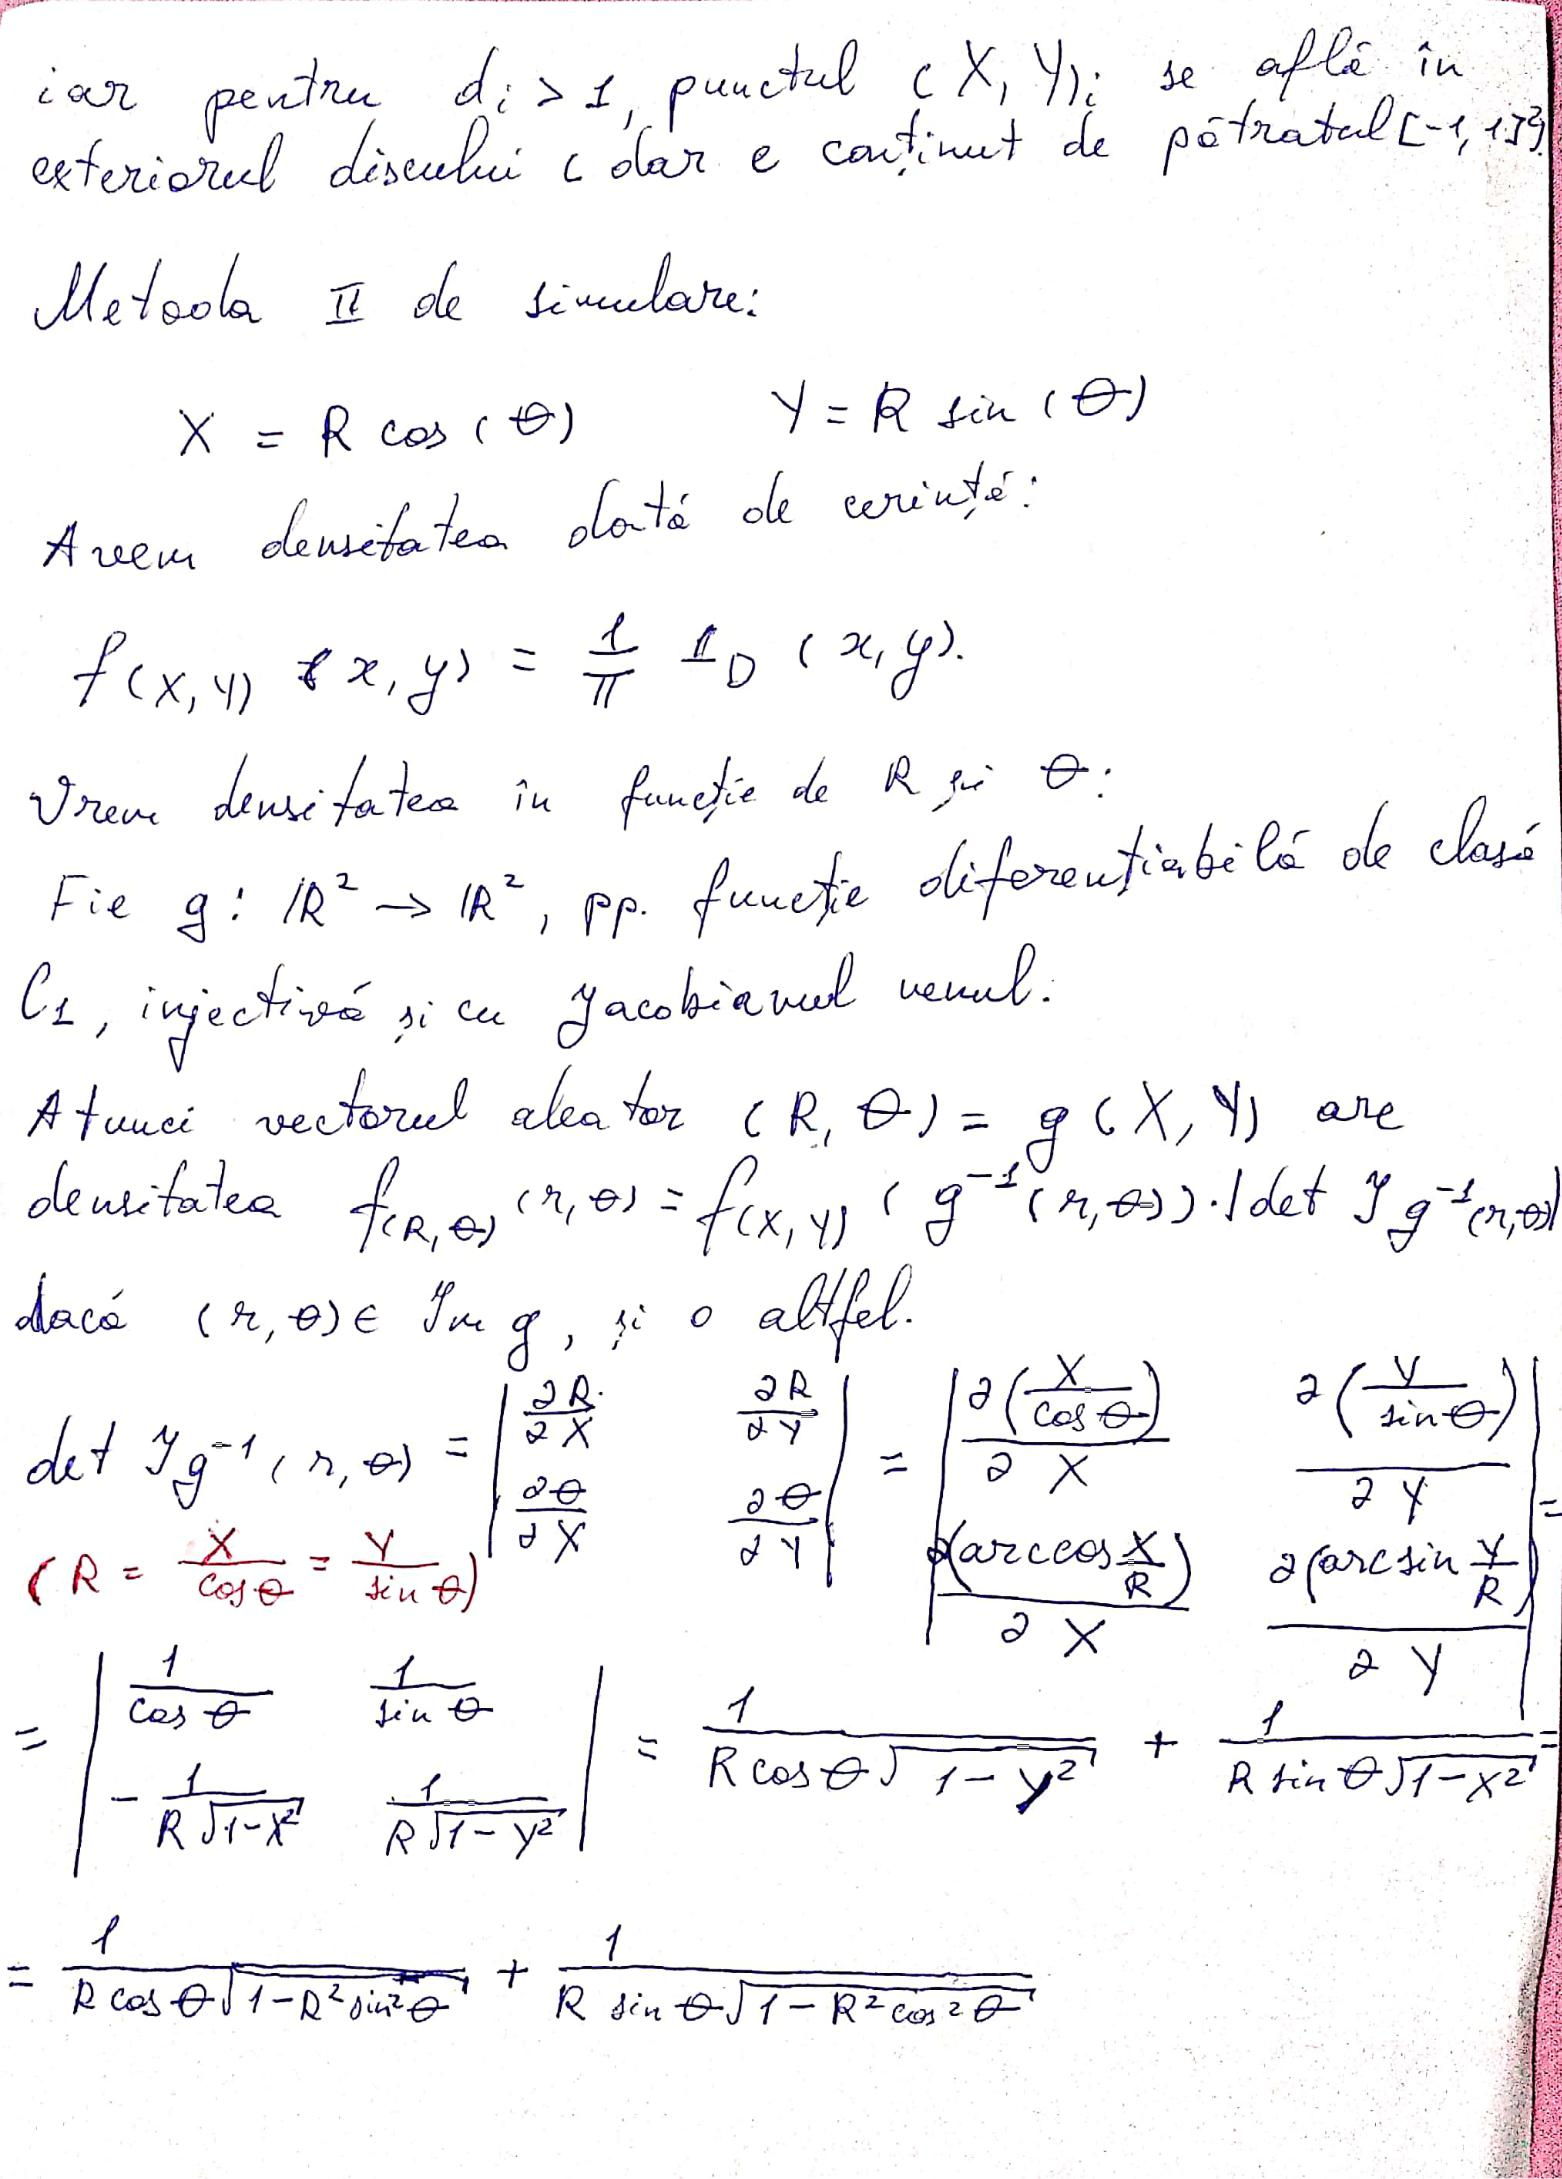 iar pentru di > 1, punctul (X, Y)i se află în
exteriorul discului (dar e conținut de pătratul [-1, 1]²).
Metoda II de simulare:
X = R cos(θ) Y = R sin(θ)
Avem densitatea dată de cerință:
f(X,Y) (x, y) = 1/π 1_D (x, y).
Vrem densitatea în funcție de R și θ:
Fie g: ℝ² → ℝ², pp. funcție diferențiabilă de clasă
C₁, injectivă și cu Jacobianul nenul.
Atunci vectorul aleator (R, θ) = g(X, Y) are
densitatea f(R,θ) (r, θ) = f(X,Y) (g⁻¹(r, θ)) · |det J g⁻¹(r, θ)|
dacă (r, θ) ∈ Im g, și 0 altfel.
det J g⁻¹(r, θ) = | ∂R/∂X ∂R/∂Y ; ∂θ/∂X ∂θ/∂Y | = | ∂(X/cos θ)/∂X ∂(Y/sin θ)/∂Y ; ∂(arccos X/R)/∂X ∂(arcsin Y/R)/∂Y | =
(R = X/cos θ = Y/sin θ)
= | 1/cos θ 1/sin θ ; - 1/(R√(1-X²)) 1/(R√(1-Y²)) | = 1/(R cos θ √(1-Y²)) + 1/(R sin θ √(1-X²)) =
= 1/(R cos θ √(1-R² sin² θ)) + 1/(R sin θ √(1-R² cos² θ))